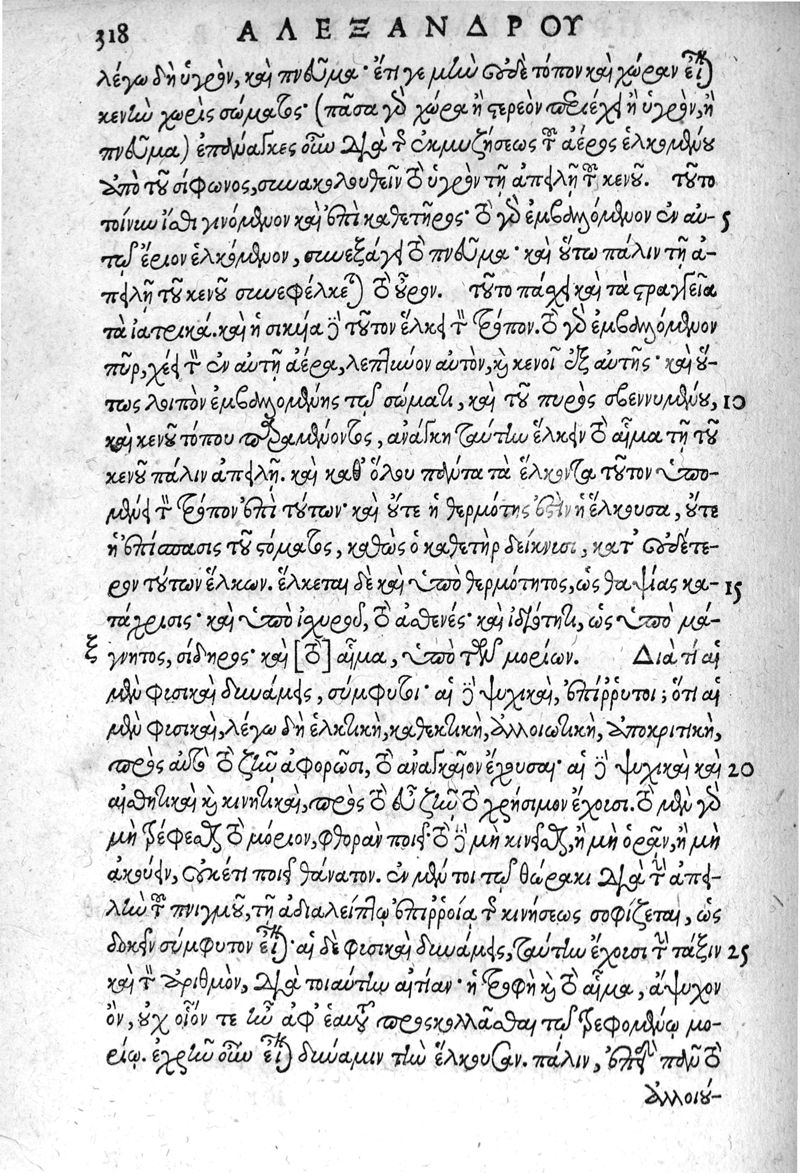 318 ΑΛΕΞΑΝΔΡΟΥ
λέγω δὴ ὑγρὸν, καὶ πνεῦμα· ἔτι γε μὴν οὐδὲ τόπον καὶ χώραν εἶναι
κενὴν χωρὶς σώματος· (πᾶσα γὰρ χώρα ἢ στερεὸν περιέχει ἢ ὑγρὸν, ἢ
πνεῦμα) ἐπάναγκες οὖν διὰ τῆς ἐκμυζήσεως τοῦ ἀέρος ἑλκομένου
ἀπὸ τοῦ σίφωνος, συνακολουθεῖν τὸ ὑγρὸν τῇ ἀπειλῇ τοῦ κενοῦ. τοῦτο
τοίνυν ἴσθι γινόμενον καὶ ἐπὶ καθετῆρος· τὸ γὰρ ἐμβαλλόμενον ἐν αὐ- 5
τῷ ἔριον ἑλκόμενον, συνεξάγει τὸ πνεῦμα· καὶ οὕτω πάλιν τῇ ἀ-
πειλῇ τοῦ κενοῦ συνεφέλκεται τὸ οὖρον. τοῦτο πάσχει καὶ τὰ στραγγεῖα
τὰ ἰατρικά. καὶ ἡ σικύα δὲ τοῦτον ἕλκει τὸν τρόπον. τὸ γὰρ ἐμβαλλόμενον
πῦρ, χεῖ τὸν ἐν αὐτῇ ἀέρα, λεπτῦνον αὐτὸν, καὶ κενοῖ ἐξ αὐτῆς· καὶ οὕ-
τως λοιπὸν ἐμβαλλομένης τῷ σώματι, καὶ τοῦ πυρὸς σβεννυμένου, 10
καὶ κενοῦ τόπου παραμένοντος, ἀνάγκη ταύτην ἕλκειν τὸ αἷμα τῇ τοῦ
κενοῦ πάλιν ἀπειλῇ. καὶ καθ' ὅλου πάντα τὰ ἕλκοντα τοῦτον ὑπο-
μένει τὸν τρόπον ἐπὶ τούτων· καὶ οὔτε ἡ θερμότης ἐστὶν ἡ ἕλκουσα, οὔτε
ἡ ἐπίσπασις τοῦ στόματος, καθὼς ὁ καθετὴρ δείκνυσι, κατ' οὐδέτε-
ρον τούτων ἕλκων. ἕλκεται δὲ καὶ ὑπὸ θερμότητος, ὡς θαψίας κα- 15
τάχρισις· καὶ ὑπὸ ἰσχυροῦ, τὸ ἀσθενές· καὶ ἰδιότητι, ὡς ὑπὸ μά-
ξ γνητος, σίδηρος· καὶ [τὸ] αἷμα, ὑπὸ τῶν μορίων. Διὰ τί αἱ
μὲν φυσικαὶ δυνάμεις, σύμφυτοι· αἱ δὲ ψυχικαὶ, ἐπίρρυτοι; ὅτι αἱ
μὲν φυσικαὶ, λέγω δὴ ἑλκτικὴ, καθεκτικὴ, ἀλλοιωτικὴ, ἀποκριτικὴ,
πρὸς αὐτὸ τὸ ζῆν ἀφορῶσι, τὸ ἀναγκαῖον ἔχουσαι· αἱ δὲ ψυχικαὶ καὶ 20
αἰσθητικαὶ καὶ κινητικαὶ, πρὸς τὸ εὖ ζῆν τὸ χρήσιμον ἔχουσι. τὸ μὲν γὰρ
μὴ τρέφεσθαι τὸ μόριον, φθορὰν ποιεῖ· τὸ δὲ μὴ κινεῖσθαι, ἢ μὴ ὁρᾶν, ἢ μὴ
ἀκούειν, οὐκέτι ποιεῖ θάνατον. ἐν μέν τοι τῷ θώρακι διὰ τὴν ἀπει-
λὴν τοῦ πνιγμοῦ, τῇ ἀδιαλείπτῳ ἐπιρροίᾳ τῆς κινήσεως σοφίζεται, ὡς
δοκεῖν σύμφυτον εἶναι· αἱ δὲ φυσικαὶ δυνάμεις, ταύτην ἔχουσι τὴν τάξιν 25
καὶ τὸν ἀριθμὸν, διὰ τοιαύτην αἰτίαν· ἡ τροφὴ καὶ τὸ αἷμα, ἄψυχον
ὂν, οὐχ οἷόν τε ἦν ἀφ' ἑαυτοῦ προσκολλᾶσθαι τῷ τρεφομένῳ μο-
ρίῳ. ἐχρῆν οὖν εἶναι δύναμιν τὴν ἕλκουσαν. πάλιν, ἐπειδὴ πάνυ τὸ
ἀλλοιού-